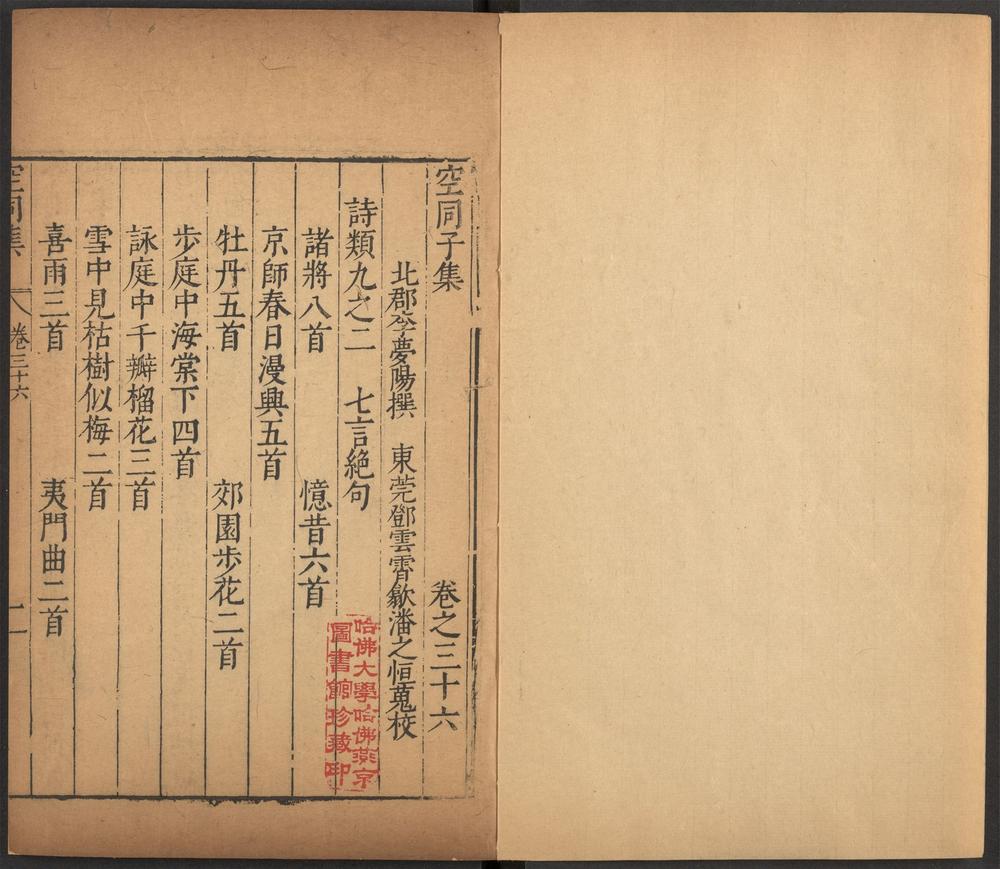 空同子集 卷之三十六
北郡李夢陽撰 東莞鄧雲霄歙潘之恒蒐校
詩類九之二 七言絕句
諸將八首 憶昔六首
京師春日漫興五首
牡丹五首 郊園步花二首
步庭中海棠下四首
詠庭中千瓣榴花三首
雪中見枯樹似梅二首
喜雨三首 夷門曲二首
空同集 卷三十六 一
哈佛大學哈佛燕京
圖書館珍藏印